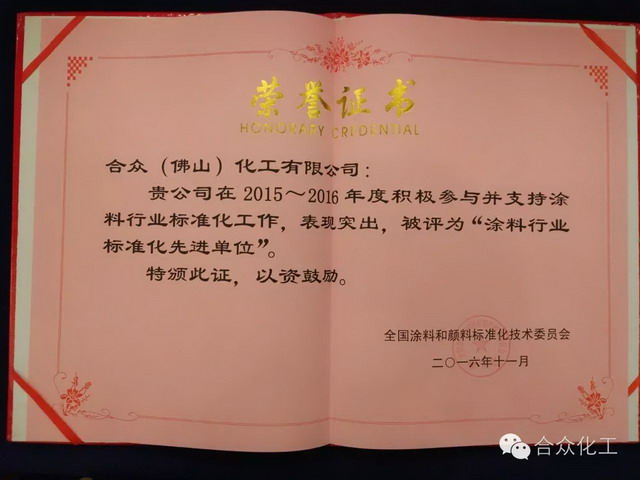 荣誉证书
HONORARY CREDENTIAL
合众（佛山）化工有限公司：
贵公司在2015～2016年度积极参与并支持涂
料行业标准化工作，表现突出，被评为“涂料行业
标准化先进单位”。
特颁此证，以资鼓励。
全国涂料和颜料标准化技术委员会
二〇一六年十一月
合众化工